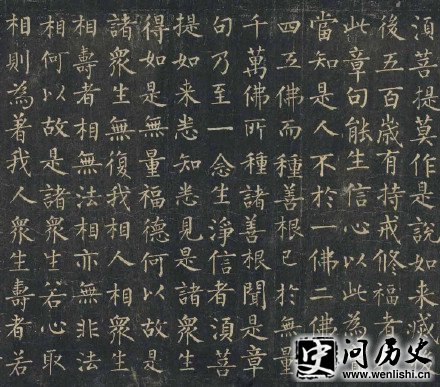 須菩提莫作是說如來滅
後五百歲有持戒修福者
此章句能生信心以此為
當知是人不於一佛二佛
四五佛而種善根已於無量
千萬佛所種諸善根聞是章
句乃至一念生淨信者須菩
提如來悉知悉見是諸衆生
得如是無量福德何以故是
諸衆生無復我相人相衆生
相壽者相無法相亦無非法
相何以故是諸衆生若心取
相則為着我人衆生壽者若
问历史
www.wenlishi.cn